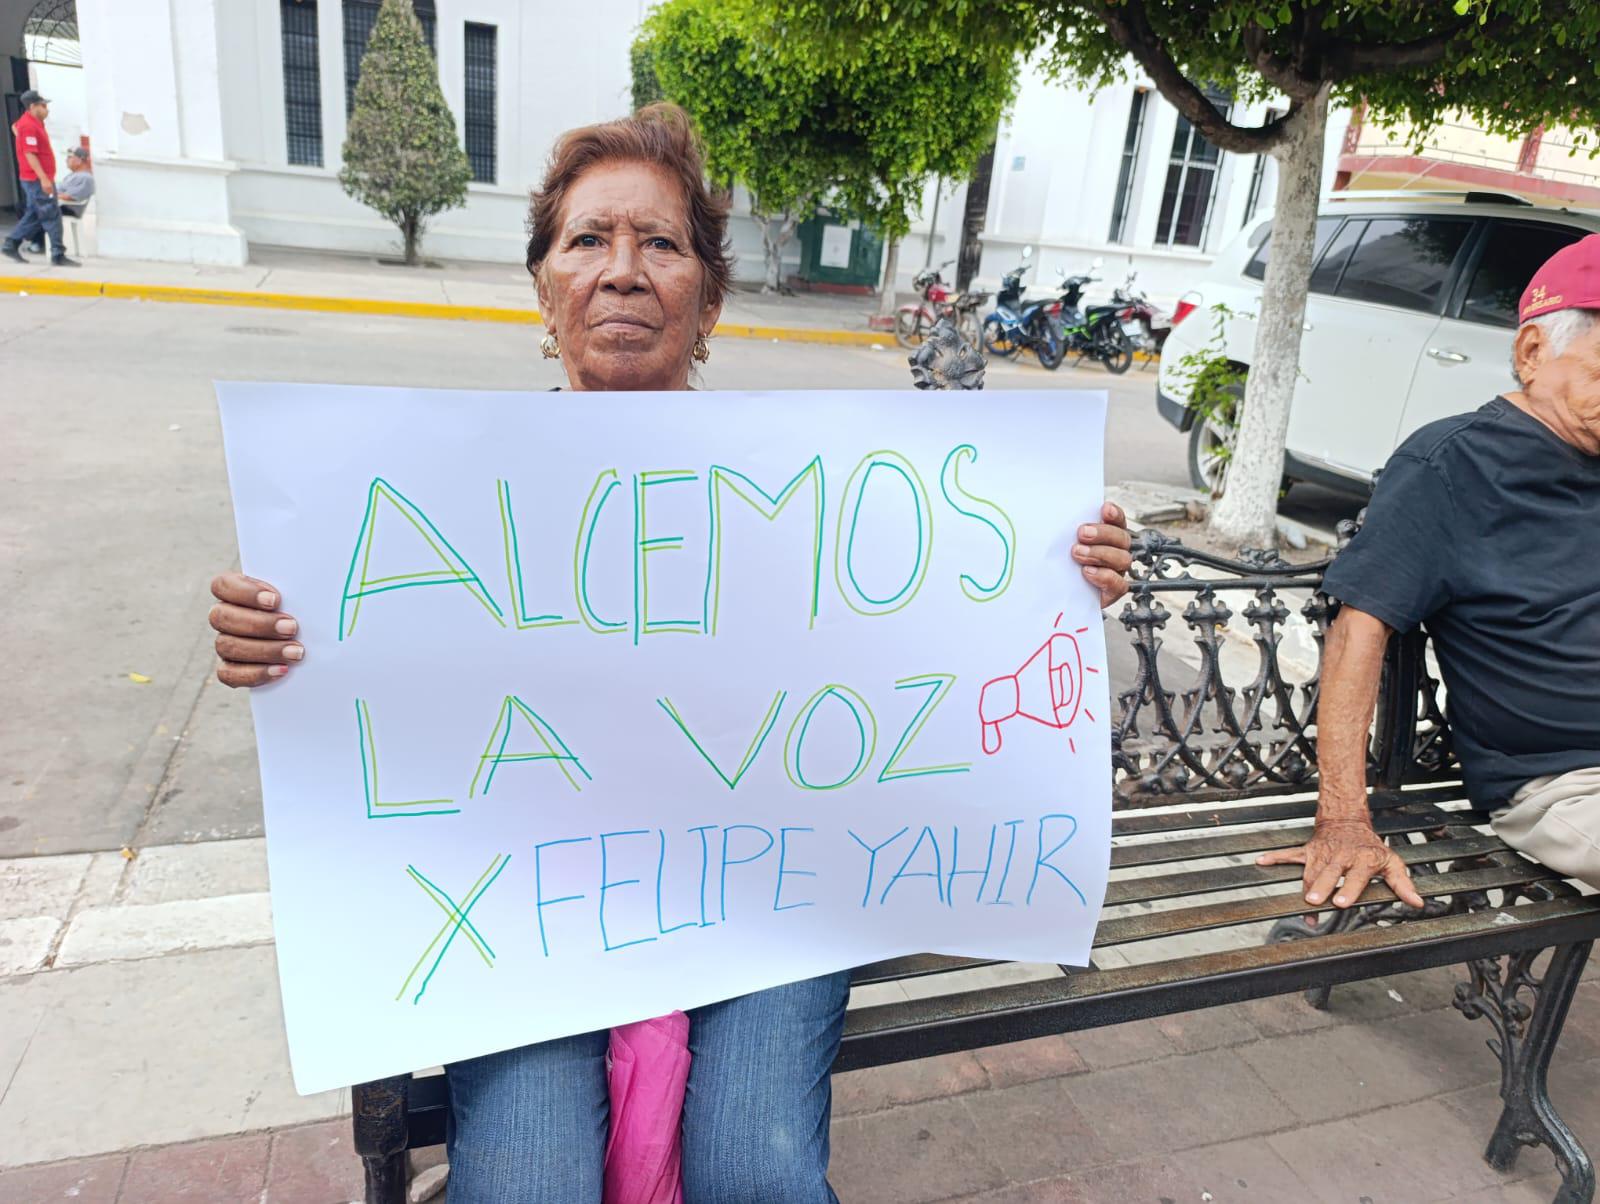 ALCEMOS
LA VOZ
X FELIPE YAHIR
34